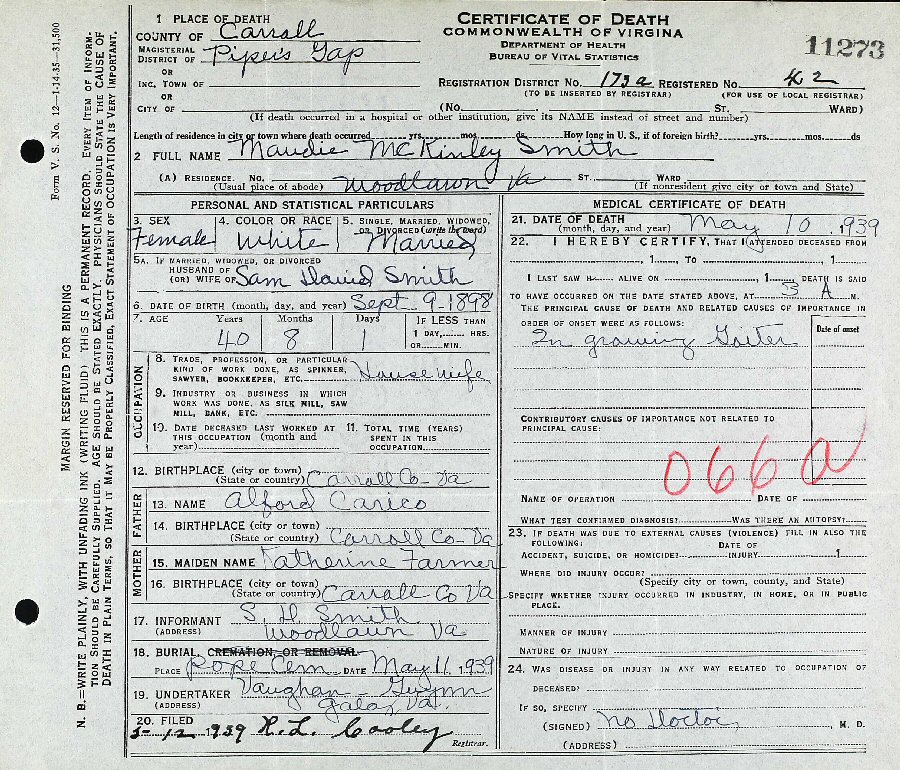 Form V. S. No. 12—1-14-35—31,500
MARGIN RESERVED FOR BINDING
N. B.—WRITE PLAINLY, WITH UNFADING INK (WRITING FLUID) THIS IS A PERMANENT RECORD. EVERY ITEM OF INFORMATION SHOULD BE CAREFULLY SUPPLIED. AGE SHOULD BE STATED EXACTLY. PHYSICIANS SHOULD STATE THE CAUSE OF DEATH IN PLAIN TERMS, SO THAT IT MAY BE PROPERLY CLASSIFIED. EXACT STATEMENT OF OCCUPATION IS VERY IMPORTANT.
1 PLACE OF DEATH
COUNTY OF Carroll
MAGISTERIAL DISTRICT OF Pipers Gap
OR
INC. TOWN OF
OR
CITY OF
CERTIFICATE OF DEATH
COMMONWEALTH OF VIRGINIA
DEPARTMENT OF HEALTH
BUREAU OF VITAL STATISTICS
11273
REGISTRATION DISTRICT NO. 173a REGISTERED NO. 42
(TO BE INSERTED BY REGISTRAR) (FOR USE OF LOCAL REGISTRAR)
(NO. ST. WARD)
(If death occurred in a hospital or other institution, give its NAME instead of street and number)
Length of residence in city or town where death occurred yrs. mos. ds. How long in U. S., if of foreign birth? yrs. mos. ds
2 FULL NAME Maudie McKinley Smith
(A) RESIDENCE. NO. Woodlawn Va ST. WARD
(Usual place of abode) (If nonresident give city or town and State)
PERSONAL AND STATISTICAL PARTICULARS
3. SEX Female
4. COLOR OR RACE White
5. SINGLE, MARRIED, WIDOWED, OR DIVORCED (write the word) Married
5A. IF MARRIED, WIDOWED, OR DIVORCED
HUSBAND OF
(OR) WIFE OF Sam David Smith
6. DATE OF BIRTH (month, day, and year) Sept 9-1898
7. AGE Years Months Days IF LESS THAN
1 DAY, HRS.
OR MIN.
40 8 1
OCCUPATION
8. TRADE, PROFESSION, OR PARTICULAR
KIND OF WORK DONE, AS SPINNER,
SAWYER, BOOKKEEPER, ETC. House wife
9. INDUSTRY OR BUSINESS IN WHICH
WORK WAS DONE, AS SILK MILL, SAW
MILL, BANK, ETC.
10. DATE DECEASED LAST WORKED AT
THIS OCCUPATION (month and
year)
11. TOTAL TIME (YEARS)
SPENT IN THIS
OCCUPATION
12. BIRTHPLACE (city or town)
(State or country) Carroll Co-Va
FATHER
13. NAME Alford Carico
14. BIRTHPLACE (city or town)
(State or country) Carroll Co-Va
MOTHER
15. MAIDEN NAME Katherine Farmer
16. BIRTHPLACE (city or town)
(State or country) Carroll Co Va
17. INFORMANT S. D. Smith
(ADDRESS) Woodlawn Va
18. BURIAL, CREMATION, OR REMOVAL
PLACE Pope Cem DATE May 11, 1939
19. UNDERTAKER Vaughan-Guynn
(ADDRESS) Galax, Va.
20. FILED
5-12-1939 R. L. Cooley
Registrar.
MEDICAL CERTIFICATE OF DEATH
21. DATE OF DEATH May 10, 1939
(month, day, and year)
22. I HEREBY CERTIFY, THAT I ATTENDED DECEASED FROM
, 1 , TO , 1
I LAST SAW H ALIVE ON , 1 DEATH IS SAID
TO HAVE OCCURRED ON THE DATE STATED ABOVE, AT A M.
THE PRINCIPAL CAUSE OF DEATH AND RELATED CAUSES OF IMPORTANCE IN
ORDER OF ONSET WERE AS FOLLOWS:
Date of onset
In growing Goiter
CONTRIBUTORY CAUSES OF IMPORTANCE NOT RELATED TO
PRINCIPAL CAUSE:
066a
NAME OF OPERATION DATE OF
WHAT TEST CONFIRMED DIAGNOSIS? WAS THERE AN AUTOPSY?
23. IF DEATH WAS DUE TO EXTERNAL CAUSES (VIOLENCE) FILL IN ALSO THE
FOLLOWING:
ACCIDENT, SUICIDE, OR HOMICIDE? DATE OF INJURY 1
WHERE DID INJURY OCCUR?
(Specify city or town, county, and State)
SPECIFY WHETHER INJURY OCCURRED IN INDUSTRY, IN HOME, OR IN PUBLIC
PLACE.
MANNER OF INJURY
NATURE OF INJURY
24. WAS DISEASE OR INJURY IN ANY WAY RELATED TO OCCUPATION OF
DECEASED?
IF SO, SPECIFY
(SIGNED) No Doctor, M. D.
(ADDRESS)